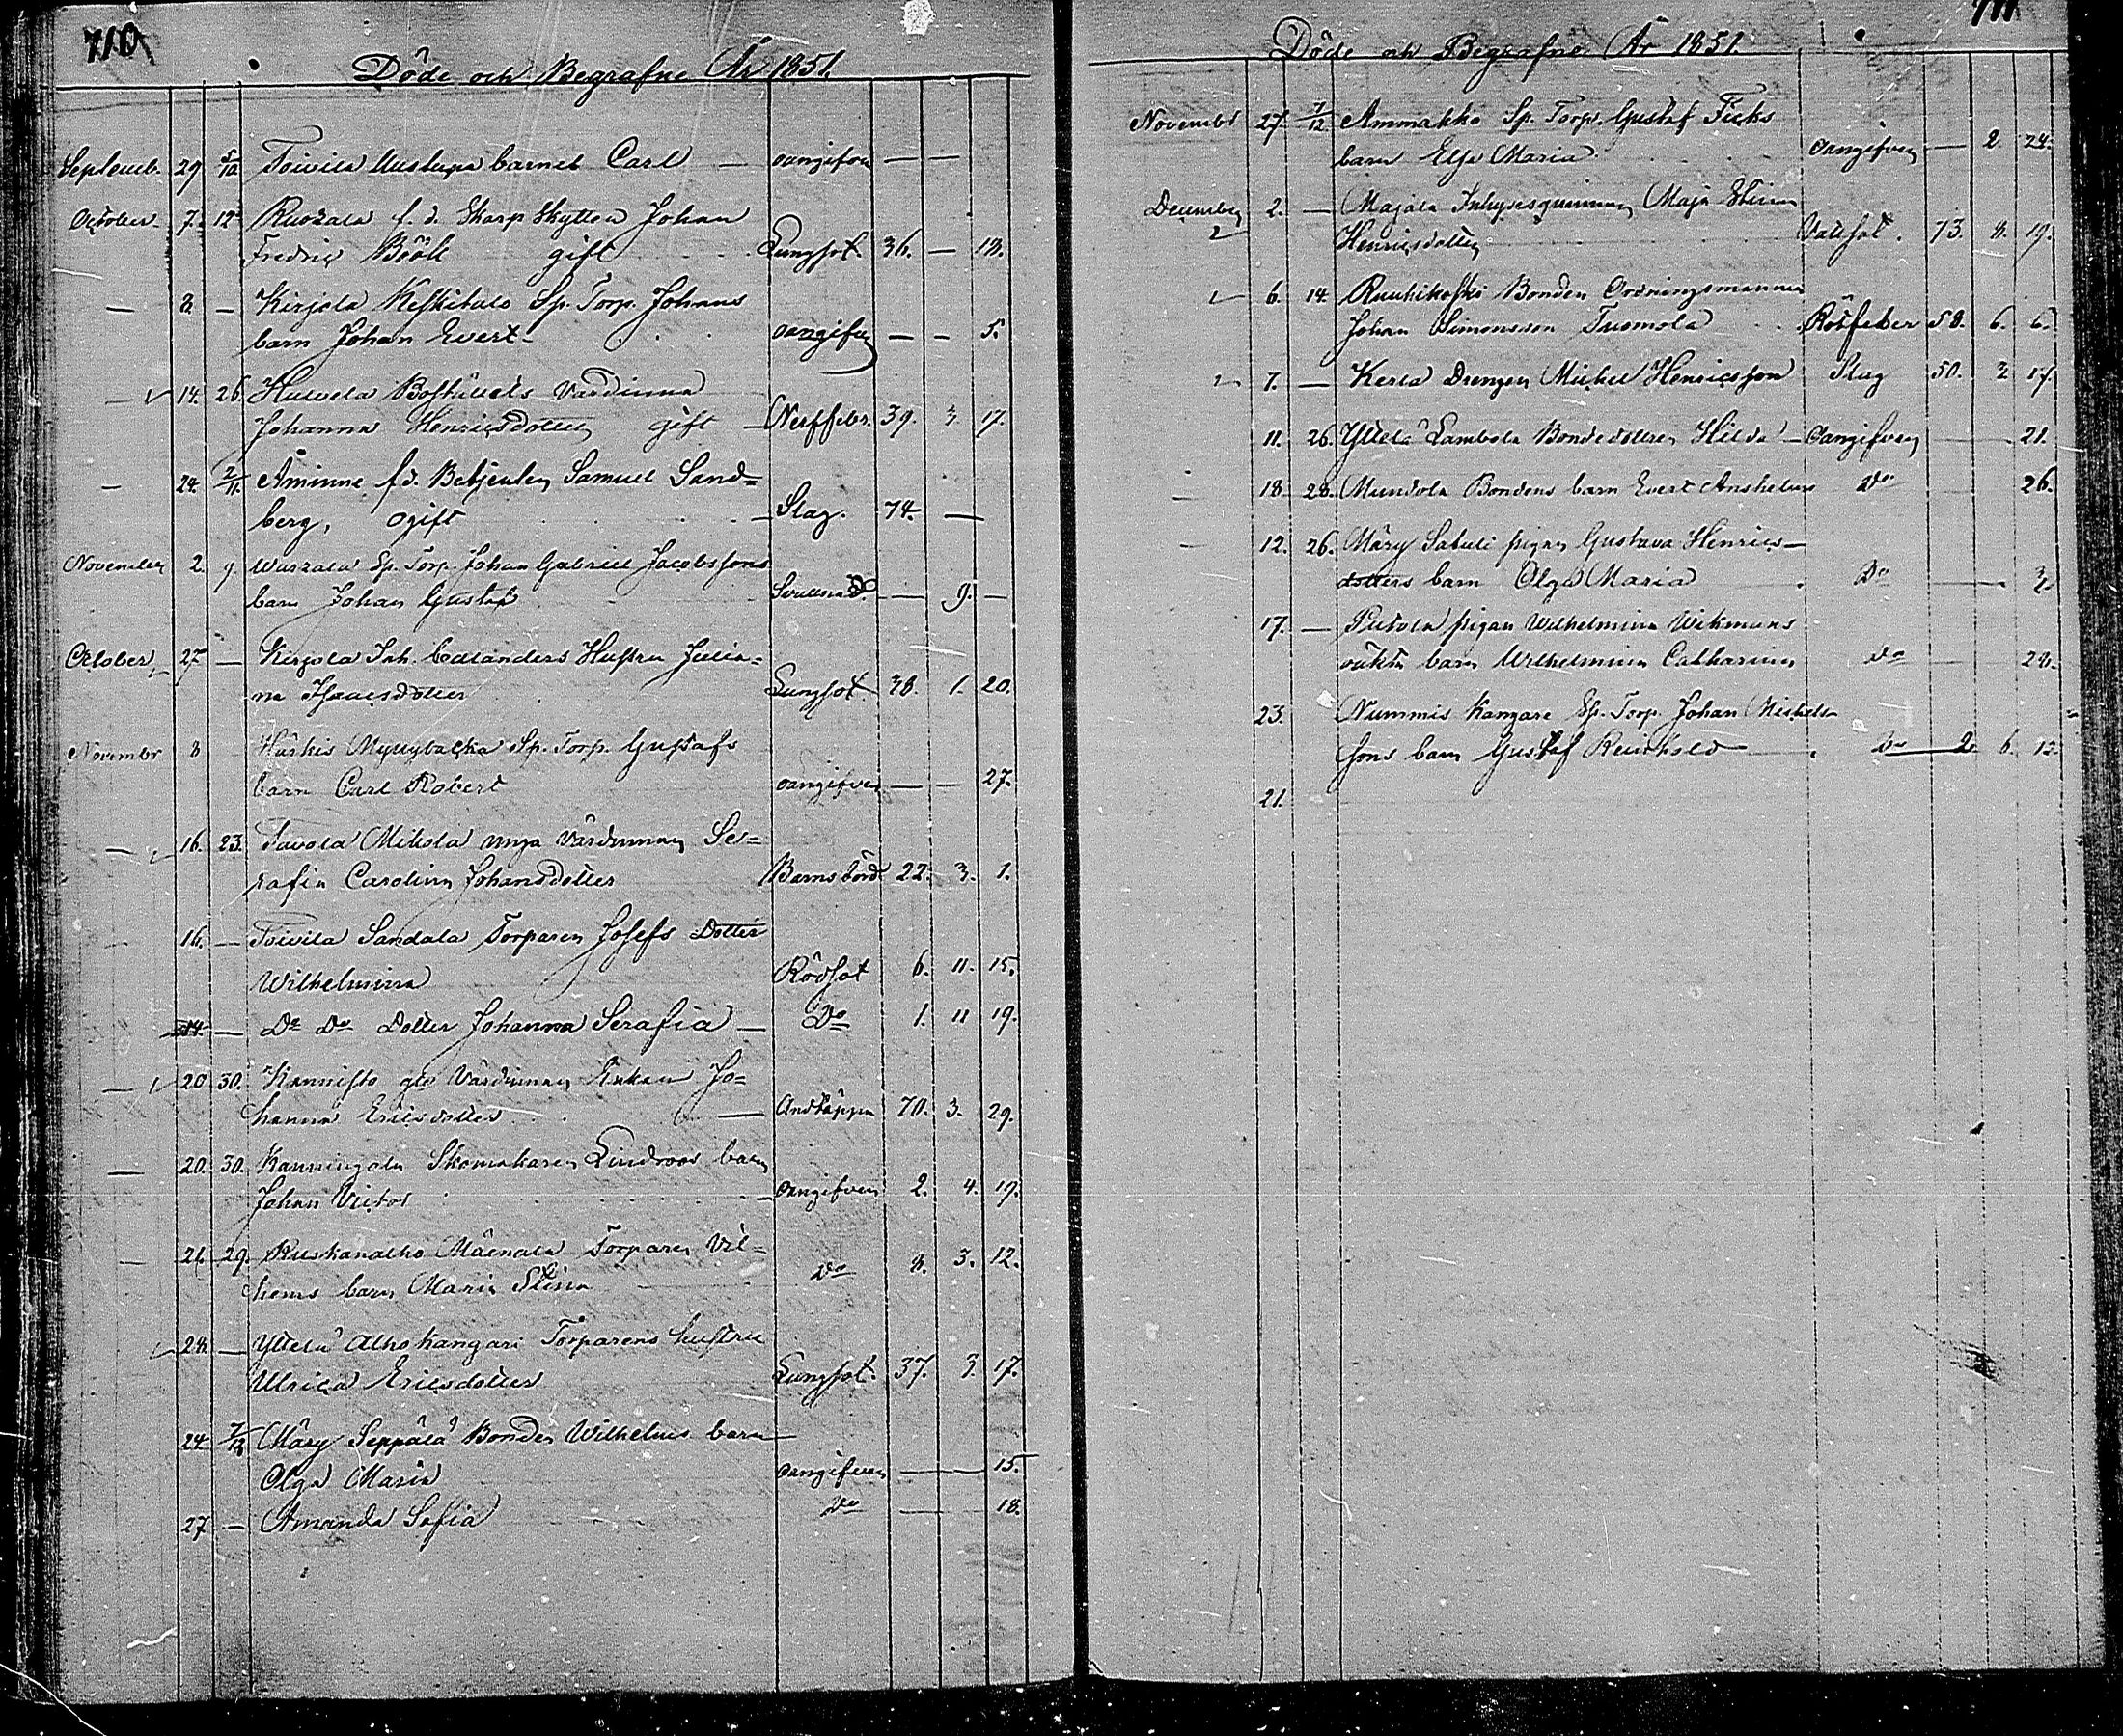 710
Döde och Begrafne År 1851.
Septemb. 29 5/10 Toivila barnet Carl — oangifven — —
October 7. 12 f. d. Skarp Skytten Johan
Fredric Böök gift Lungsot 36. — 18.
— 8 — Kirjola Keskitalo Sp. Torp. Johans
barn Johan Evert oangifven — — 5.
— 14. 26. Bostállets Värdinna
Johanna Henricsdotter gift Nerffeber. 39. 3. 17.
— 24. 2/11. Åminne f. d. Betjenten Samuel Sand=
berg, ogift — Slag. 74. —
November 2. 9. Sp. Torp. Johan Gabriel Jacobssons
barn Johan Gustaf — 9. —
October 27 — Kirjola Inh. Hustru Julia=
na Isaacsdotter Lungsot 38. 1. 20.
Novembr 8 Sp. Torp. Gustafs
barn Carl Robert oangifven — — 27.
— 16. 23. Tavola Mikola unga Värdinnan Se=
rafia Carolina Johansdotter Barnsbörd 22. 3. 1.
— 16. — Toivila Sandala Torparen Josefs Dotter
Wilhelmina Rödsot 6. 11. 15.
14. — Do Do Dotter Johanna Serafia — Do 1. 11 19.
— 20 30. Kannisto gla Värdinnan Enkan Jo=
hanna Ericsdotter — Andtäppa 70. 3. 29.
— 20. 30. Skomakaren Lindroos barn
Johan Victor — oangifven 2. 4. 19.
— 21. 29. Ruskanalho Mäenala Torparen Vil=
helms barn Maria Stina Do 8. 3. 12.
28. — Yltelä Alhokangari Torparens hustru
Ulrica Ericsdotter Lungsot. 37. 3. 17.
24 7/12 Märy Seppälä Bonden Wilhelms barn
Olga Maria oangifven — — 15.
27 — Amanda Sofia Do — 18.
711
Döde och Begrafne År 1851.
Novembr 27. 7/12 Ammakko Sp. Torp. Gustaf
barn Elsa Maria oangifven — 2 24.
December 2. — Majala Inhysesqvinnan Maja Stina
Henricsdotter Vattsot. 73. 8. 19.
6. 14. Ruuhikoski Bonden Ordningsmannen
Johan Simonsson Tuomola Rötfeber 58. 6. 6.
7. — Kerla Drengen Michel Henricsson Slag 50. 2 17.
11. 26. Yltelä Lambola Bondedottren Hilda — oangifven — 21.
— 18. 28. Mundola Bondens barn Evert Anshelm Do — 26.
— 12. 26. Märy Sabuli pigan Gustava Henrics—
dotters barn Olga Maria Do —
17. — pigan Wilhelmina Wikmans
oäkta barn Wilhelmina Catharina Do — 28.
23. Nummis Kangare Sp. Torp. Johan Michels=
sons barn Gustaf Reinhold Do 2. 6. 12.
21.